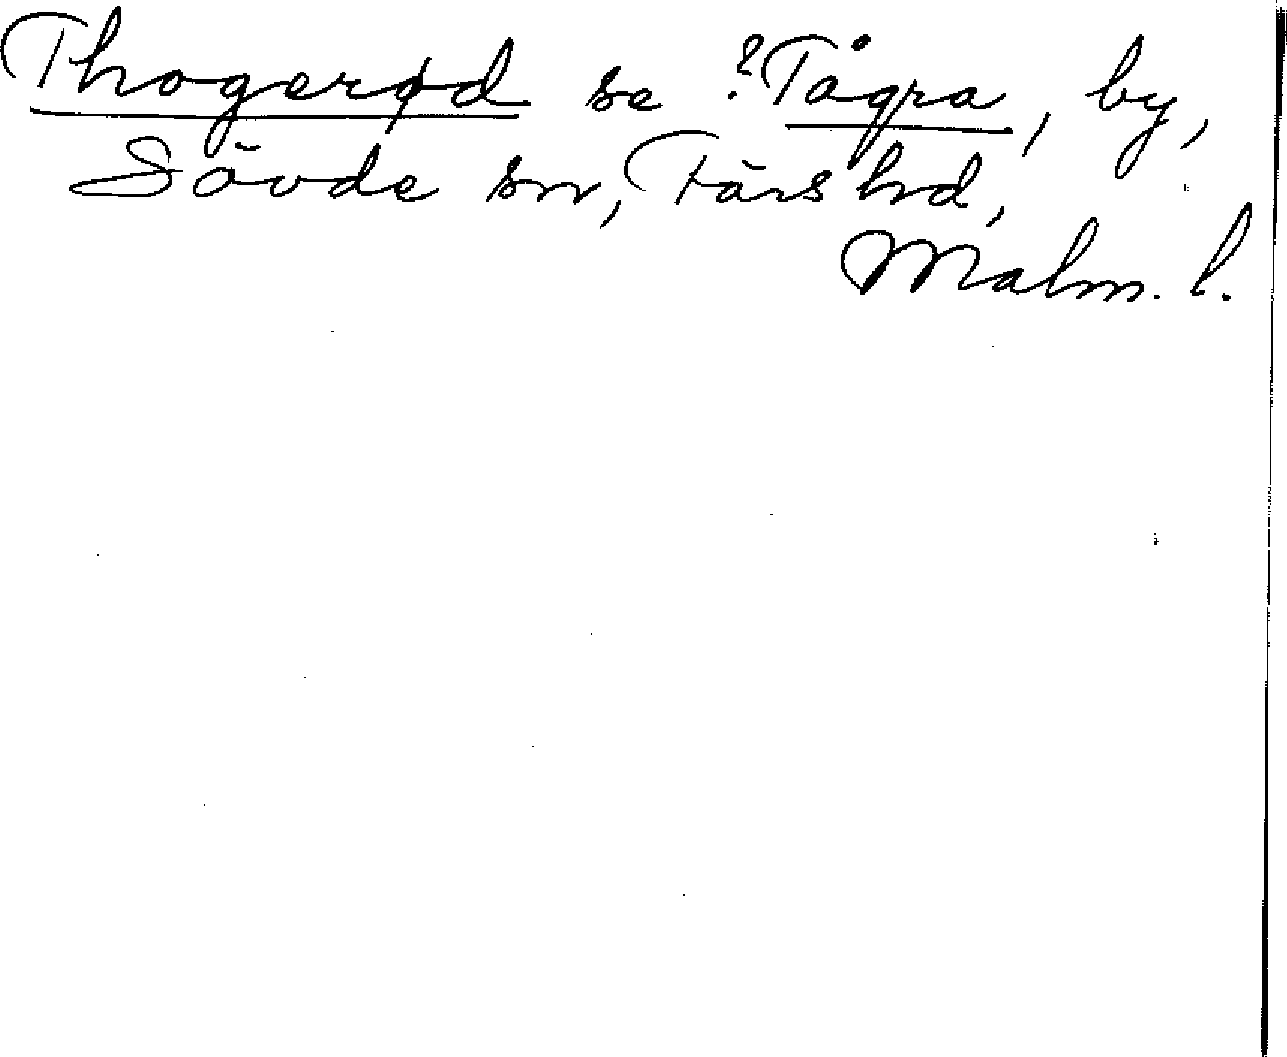 Thogerød se ?Tågra, by,
Sövde sn, Färs hd,
Malm. l.